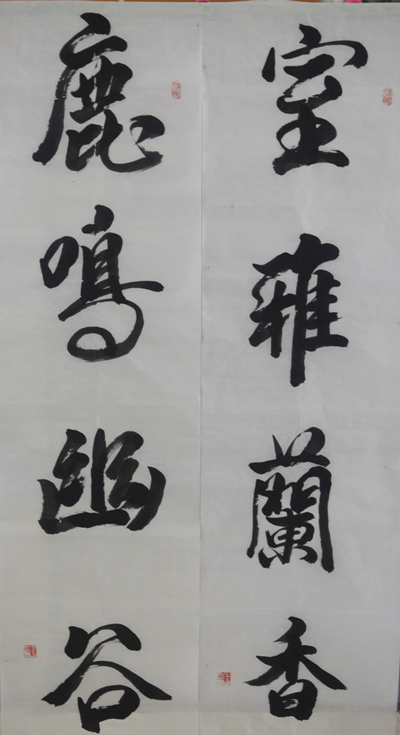 室雅蘭香
鹿鳴幽谷